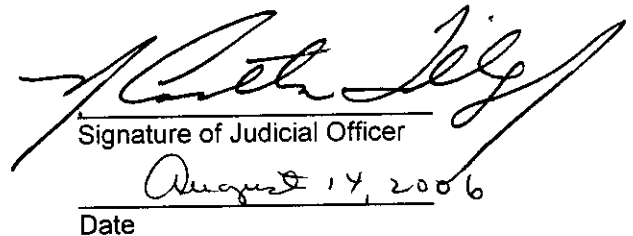 Signature of Judicial Officer
August 14, 2006
Date